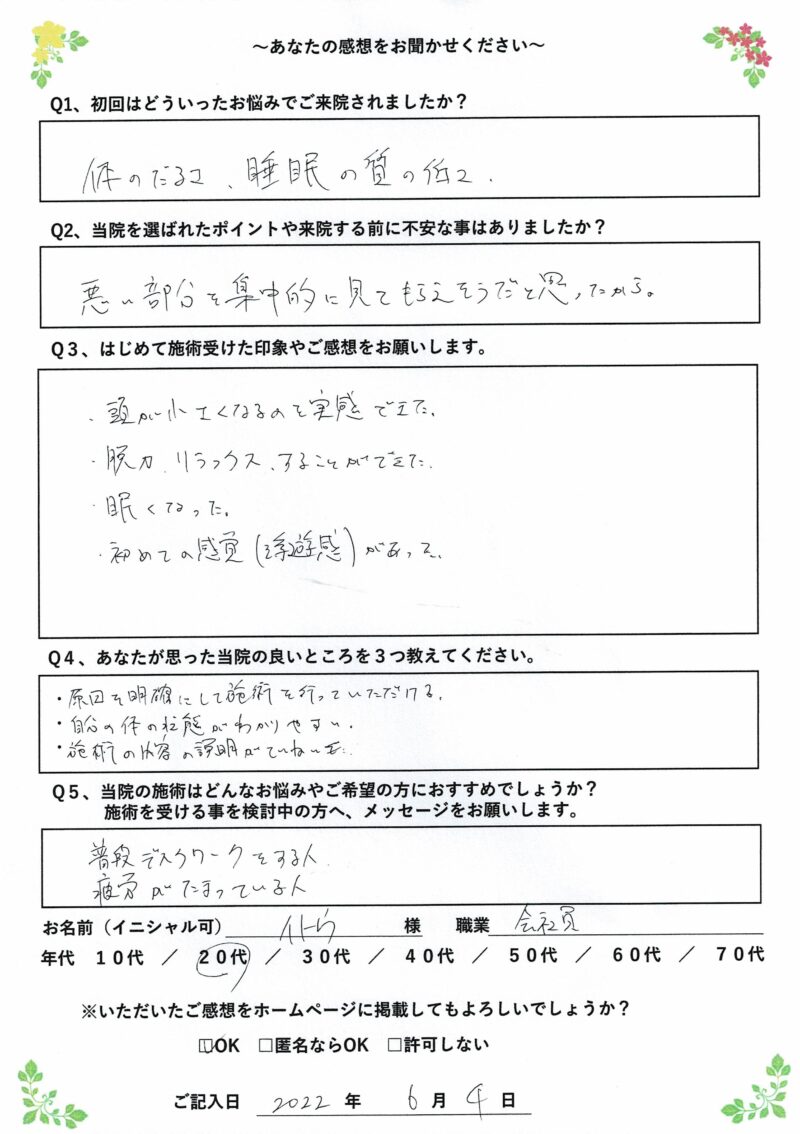 ～あなたの感想をお聞かせください～
Q1、初回はどういったお悩みでご来院されましたか？
体のだるさ、睡眠の質の低さ．
Q2、当院を選ばれたポイントや来院する前に不安な事はありましたか？
悪い部分を集中的に見てもらえそうだと思ったから。
Q３、はじめて施術受けた印象やご感想をお願いします。
・頭が小さくなるのを実感できた。
・脱力、リラックス、することができた．
・眠くなった。
・初めての感覚（浮遊感）があった。
Q４、あなたが思った当院の良いところを３つ教えてください。
・原因を明確にして施術を行っていただける．
・自分の体の状態がわかりやすい．
・施術の内容の説明がていねいだ．
Q５、当院の施術はどんなお悩みやご希望の方におすすめでしょうか？
施術を受ける事を検討中の方へ、メッセージをお願いします。
普段デスクワークをする人．
疲労がたまっている人
お名前（イニシャル可） 様 職業 会社員
年代 １０代 ／ ２０代 ／ ３０代 ／ ４０代 ／ ５０代 ／ ６０代 ／ ７０代
※いただいたご感想をホームページに掲載してもよろしいでしょうか？
☑OK □匿名ならOK □許可しない
ご記入日 2022 年 6 月 4 日